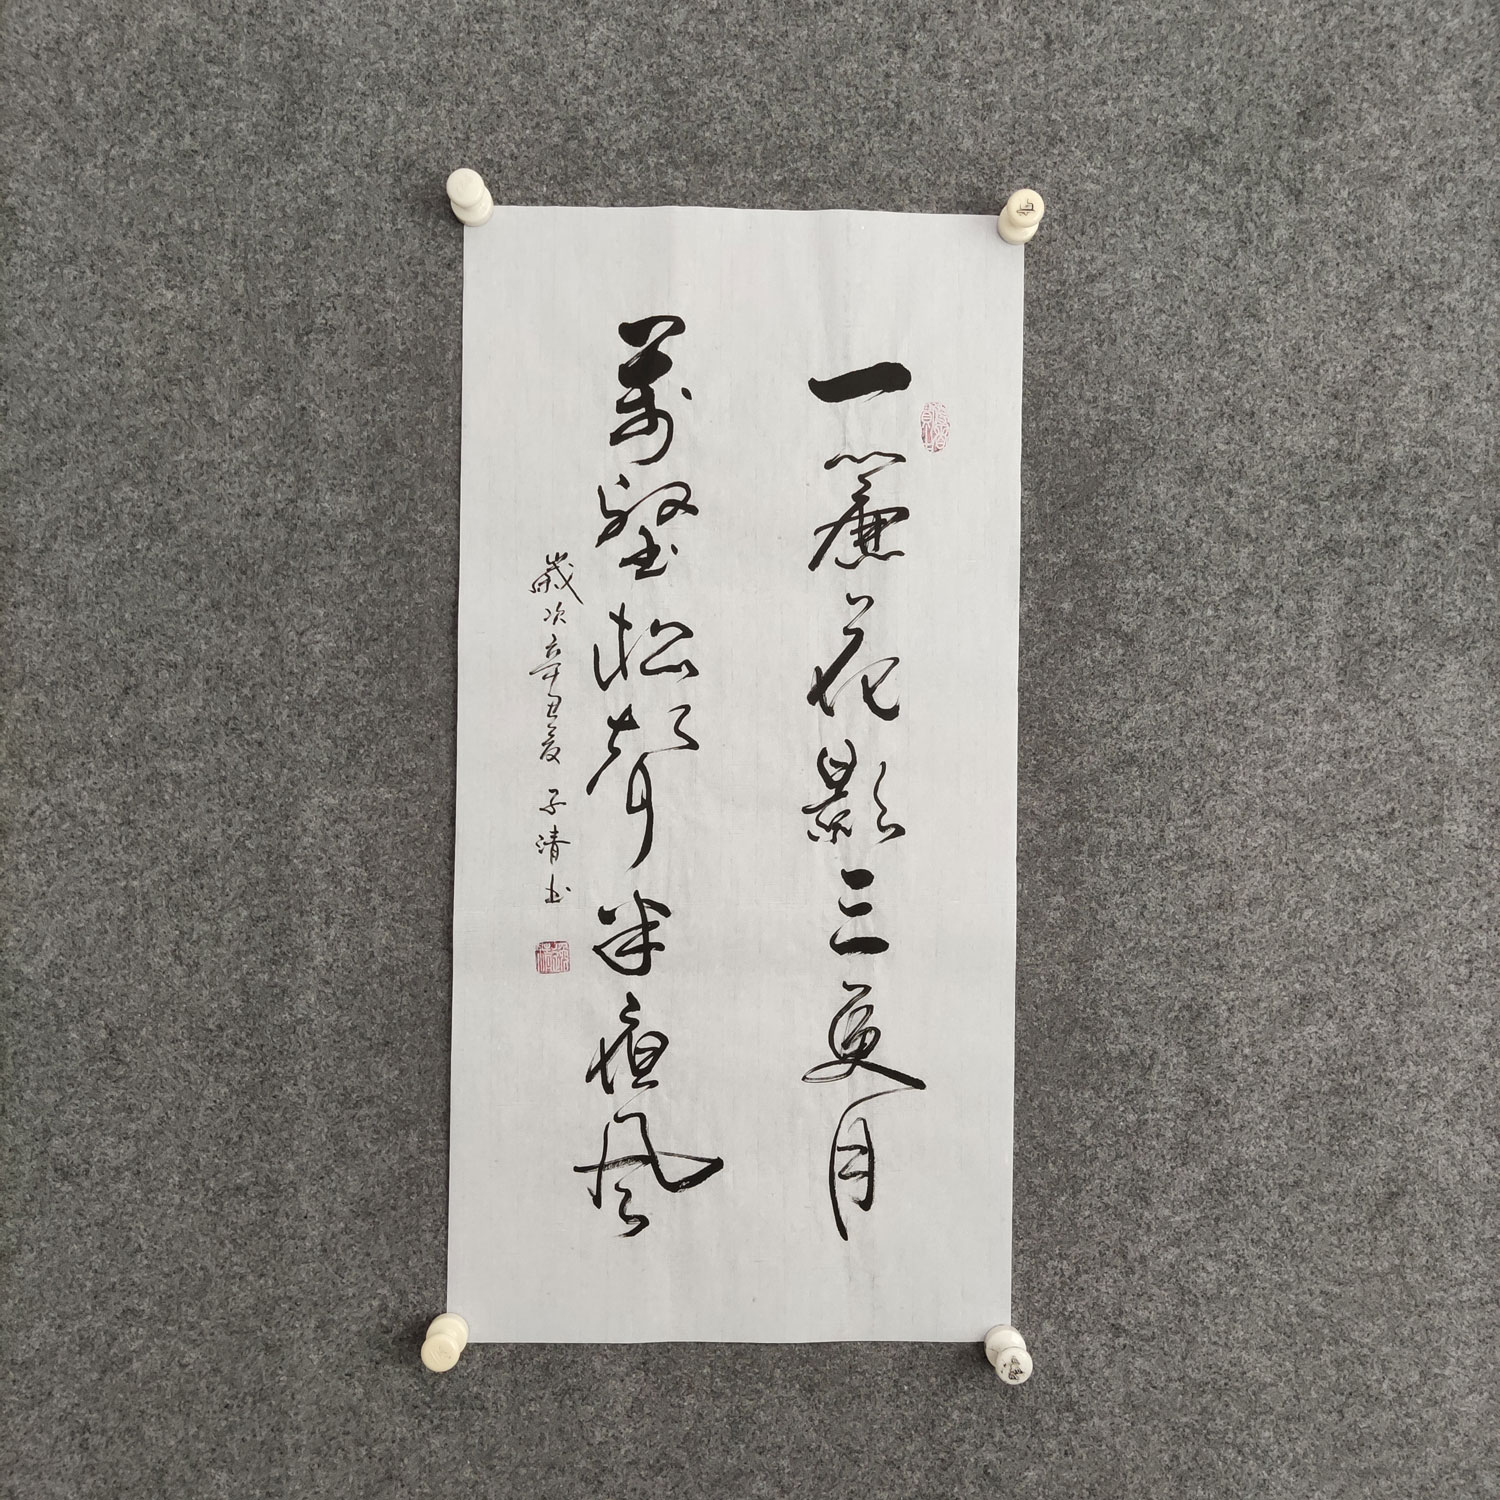 一簾花影三更月
萬壑松聲半風
歲次辛丑夏 子清書